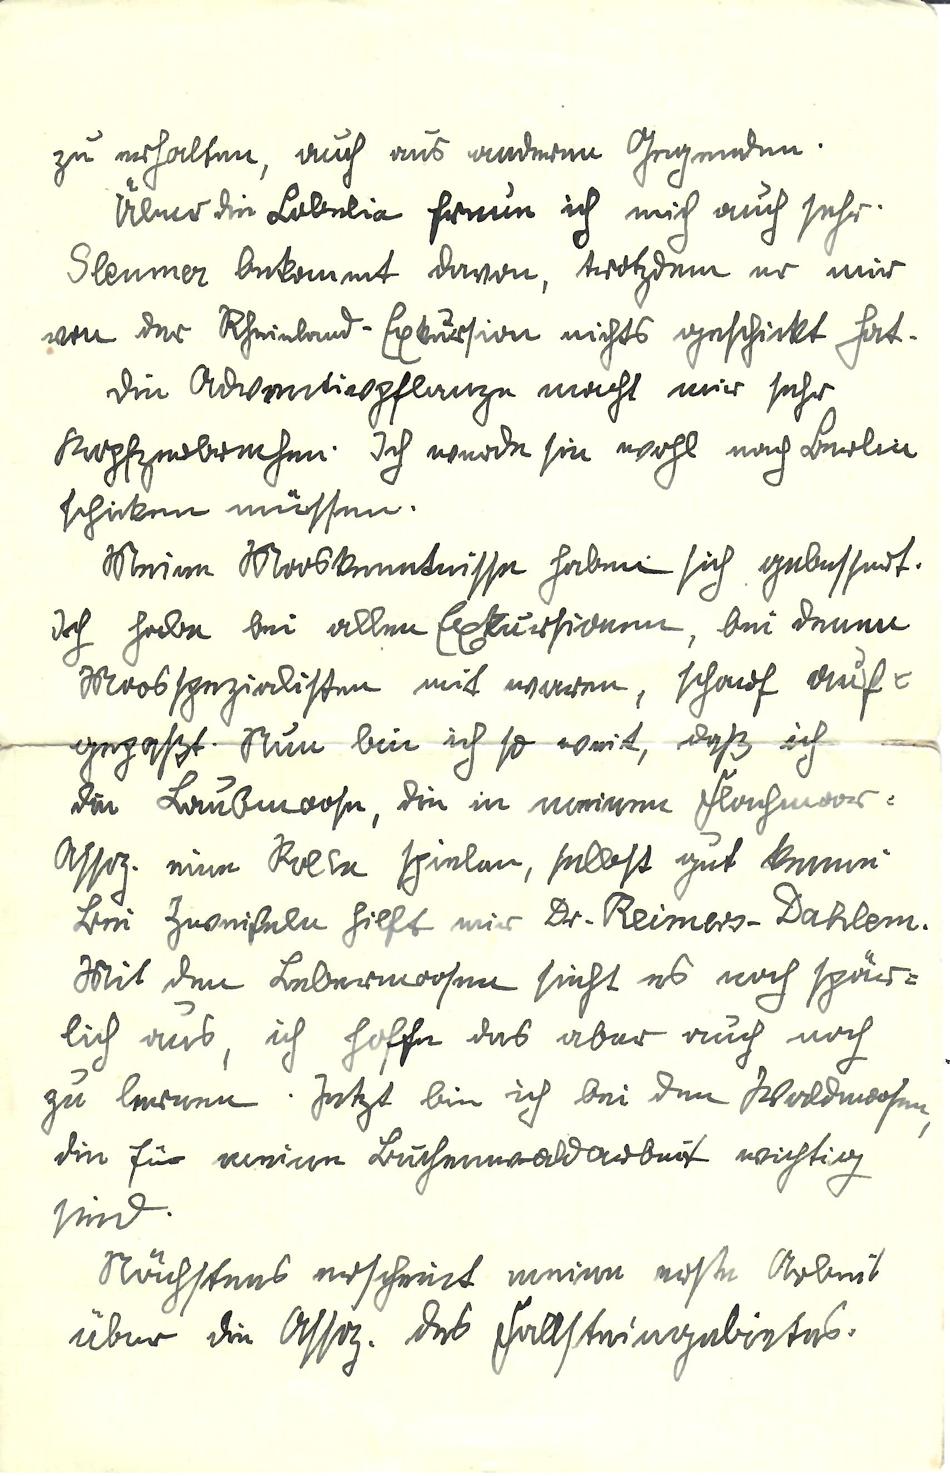 zu erhalten, auch aus anderen Gegenden.
Über die Lobelia freue ich mich auch sehr.
Sleumer bekommt davon, trotzdem er mir
von der Rheinland-Exkursion nichts geschickt hat.
Die Adventivpflanze macht mir sehr
Kopfzerbrechen. Ich werde sie wohl nach Berlin
schicken müssen.
Meine Mooskenntnisse haben sich gebessert.
Ich habe bei allen Exkursionen, bei denen
Moosspezialisten mit waren, scharf auf=
gepaßt. Nun bin ich so weit, daß ich
die Laubmoose, die in meinen Flachmoor=
Assoz. eine Rolle spielen, selbst gut kenne
Bei Zweifeln hilft mir Dr. Reimers-Dahlem.
Mit den Lebermoosen sieht es noch spär=
lich aus, ich hoffe das aber auch noch
zu lernen. Jetzt bin ich bei den Waldmoosen,
die für meine Buchenwaldarbeit wichtig
sind.
Nächstens erscheint meine erste Arbeit
über die Assoz. des Fallsteingebietes.